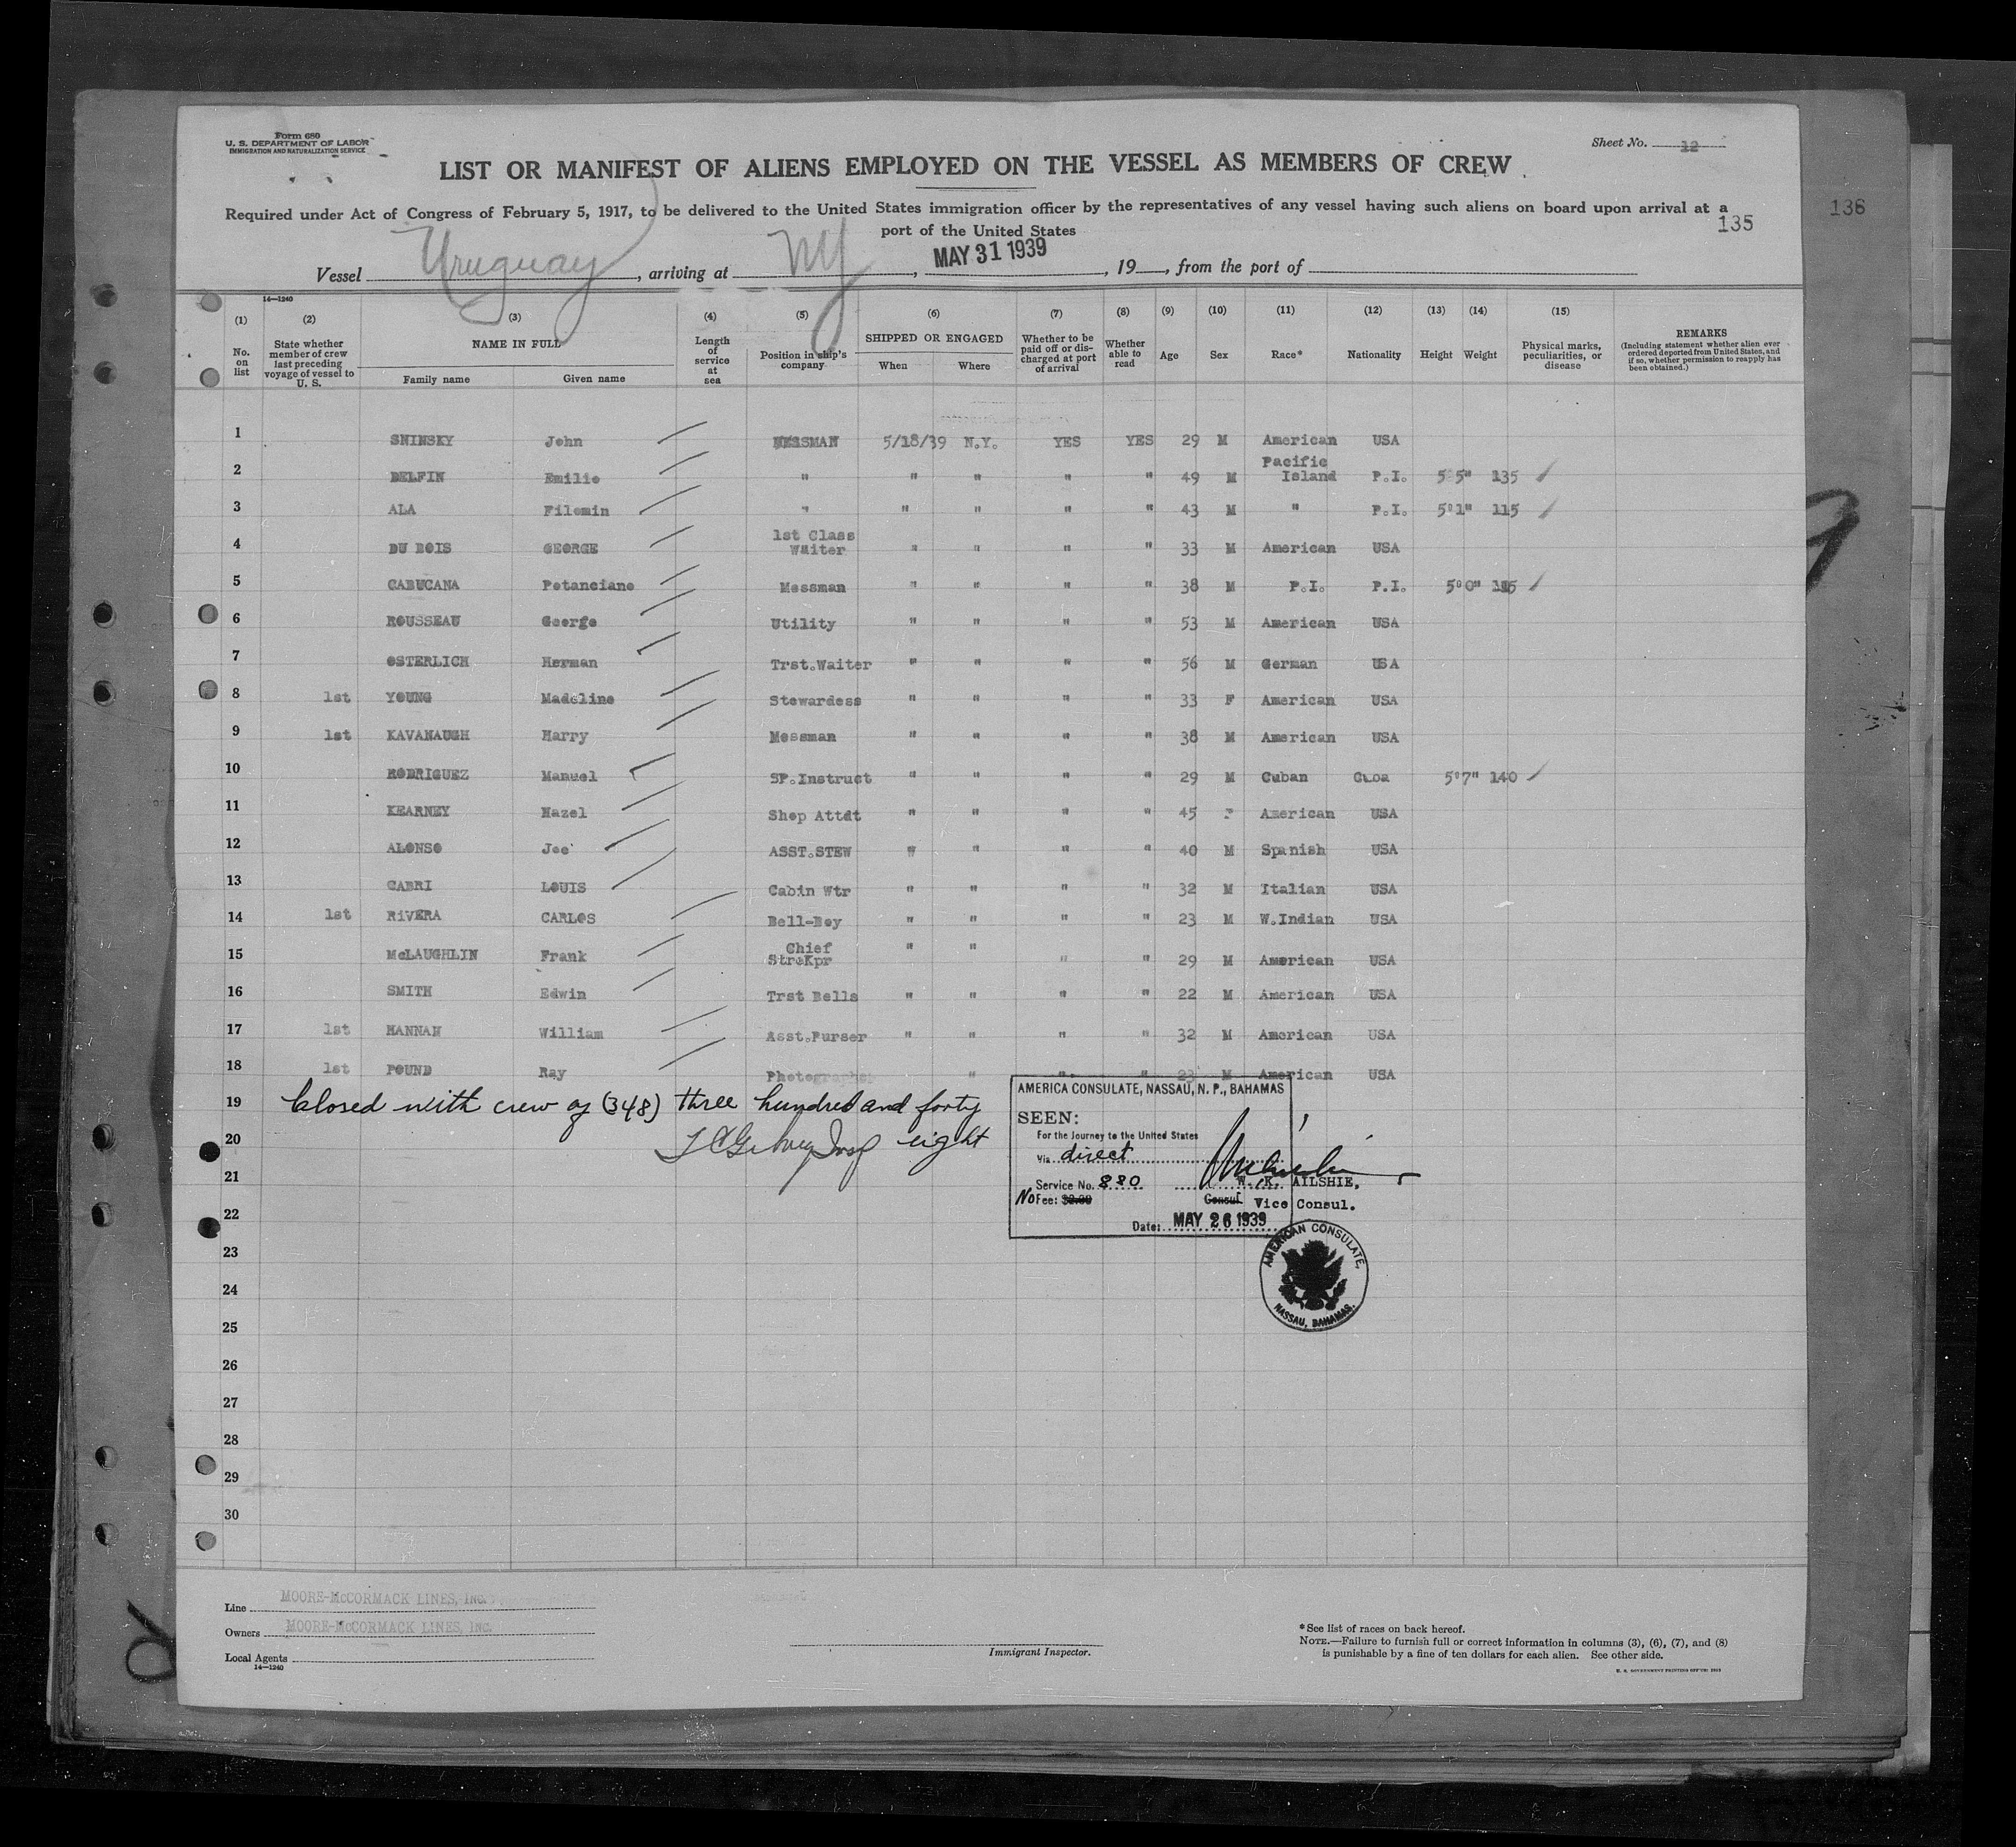 Form 680
U. S. DEPARTMENT OF LABOR
IMMIGRATION AND NATURALIZATION SERVICE
Sheet No. 12
LIST OR MANIFEST OF ALIENS EMPLOYED ON THE VESSEL AS MEMBERS OF CREW
Required under Act of Congress of February 5, 1917, to be delivered to the United States immigration officer by the representatives of any vessel having such aliens on board upon arrival at a
port of the United States
135
136
Vessel Uruguay, arriving at NY, MAY 31 1939, 19, from the port of
14—1240
(1) No. on list
(2) State whether member of crew last preceding voyage of vessel to U. S.
(3) NAME IN FULL Family name Given name
(4) Length of service at sea
(5) Position in ship's company
(6) SHIPPED OR ENGAGED When Where
(7) Whether to be paid off or discharged at port of arrival
(8) Whether able to read
(9) Age
(10) Sex
(11) Race*
(12) Nationality
(13) Height
(14) Weight
(15) Physical marks, peculiarities, or disease
REMARKS (Including statement whether alien ever ordered deported from United States, and if so, whether permission to reapply has been obtained.)
1 SNINSKY John MESSMAN 5/18/39 N.Y. YES YES 29 M American USA
2 DELFIN Emilio " " " " " 49 M Pacific Island P.I. 5'5" 135
3 ALA Filomin " " " " " 43 M " P.I. 5'1" 115
4 DU BOIS GEORGE 1st Class Waiter " " " " 33 M American USA
5 CABUCANA Potanciano Messman " " " " 38 M P.I. P.I. 5'0" 115
6 ROUSSEAU George Utility " " " " 53 M American USA
7 OSTERLICH Herman Trst.Waiter " " " " 56 M German USA
8 1st YOUNG Madeline Stewardess " " " " 33 F American USA
9 1st KAVANAUGH Harry Messman " " " " 38 M American USA
10 RODRIGUEZ Manuel SP.Instruct " " " " 29 M Cuban 5'7" 140
11 KEARNEY Hazel Shop Attdt " " " " 45 F American USA
12 ALONSO Joe ASST.STEW " " " " 40 M Spanish USA
13 CABRI LOUIS Cabin Wtr " " " " 32 M Italian USA
14 1st RiVERA CARLOS Bell-Boy " " " " 23 M W.Indian USA
15 McLAUGHLIN Frank Chief StreKpr " " " " 29 M American USA
16 SMITH Edwin Trst Bells " " " " 22 M American USA
17 1st HANNAH William Asst.Purser " " " " 32 M American USA
18 1st POUND Ray Photographer " " " 23 M American USA
19 Closed with crew of (348) three hundred and forty
20 eight
21
22
23
24
25
26
27
28
29
30
AMERICA CONSULATE, NASSAU, N. P., BAHAMAS
SEEN:
For the Journey to the United States
Via direct
Service No. 880
W. K. AILSHIE,
No Fee: $2.00
Consul Vice Consul.
Date: MAY 26 1939
AMERICAN CONSULATE,
NASSAU, BAHAMAS.
Line MOORE-McCORMACK LINES, INC.
Owners MOORE-McCORMACK LINES, INC.
Local Agents
14—1240
Immigrant Inspector.
*See list of races on back hereof.
NOTE.—Failure to furnish full or correct information in columns (3), (6), (7), and (8)
is punishable by a fine of ten dollars for each alien. See other side.